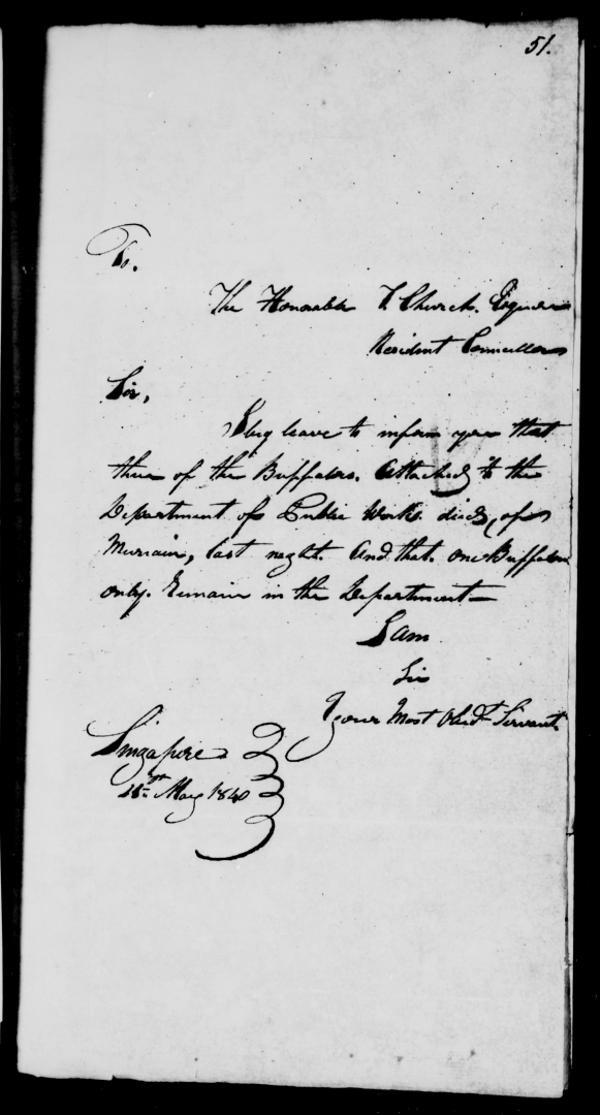 51.
To.
The Honorable T. Church. Esquire
Resident Councillor
Sir,
I beg leave to inform you that
three of the Buffaloes. Attached to the
Department of Public Works. died, of
Murrain, last night. And that. one Buffaloe
only. Remain in the Department—
I am
Sir
Your Most Obedt. Servant
Singapore
May 1840